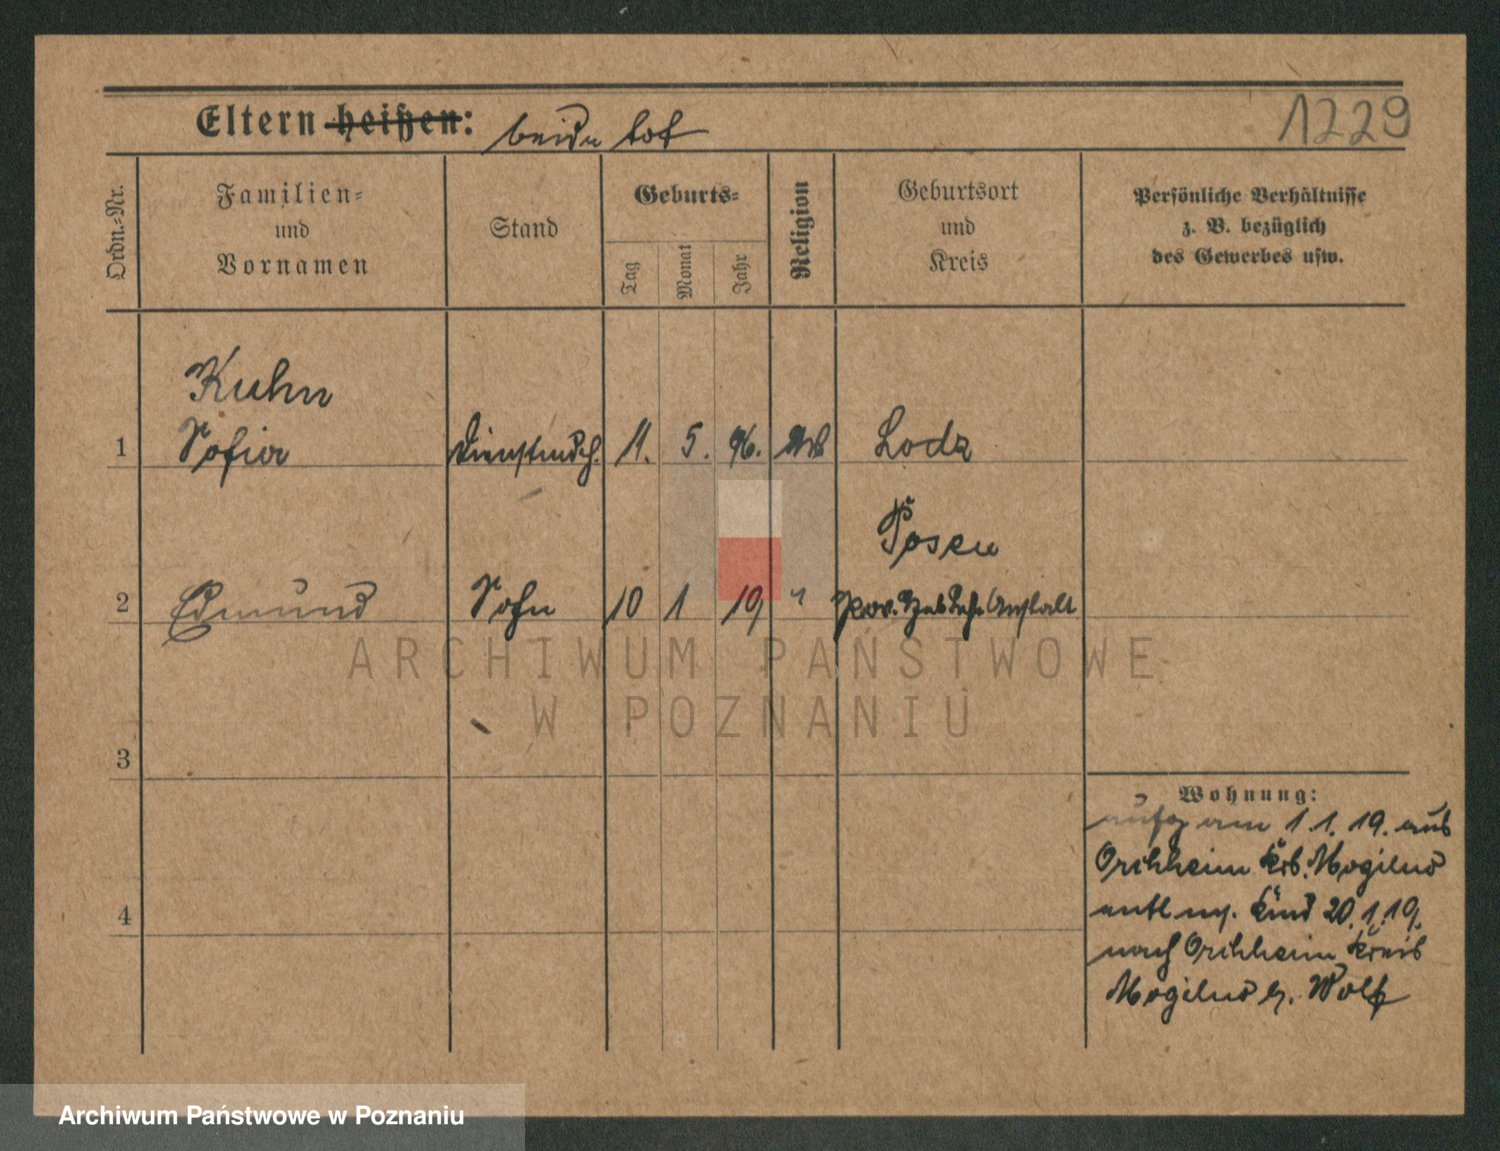 Eltern heißen: beide tot
1229
Ordn.=Nr.
Familien=
und
Vornamen
Stand
Geburts=
Tag
Monat
Jahr
Religion
Geburtsort
und
Kreis
Persönliche Verhältnisse
z. B. bezüglich
des Gewerbes usw.
Kuhn
1 Sofia Dienstmdch. 11. 5. 96. Lodz
Posen
2 Edmund Sohn 10 1 19 " Prov. Heb Lehr Anstalt
3
4
Wohnung:
aufg am 1. 1. 19. aus
Orchheim Krs. Mogilno
entl m. Kind 20. 1. 19.
nach Orchheim Kreis
Mogilno z. Wolf
ARCHIWUM PAŃSTWOWE
W POZNANIU
Archiwum Państwowe w Poznaniu